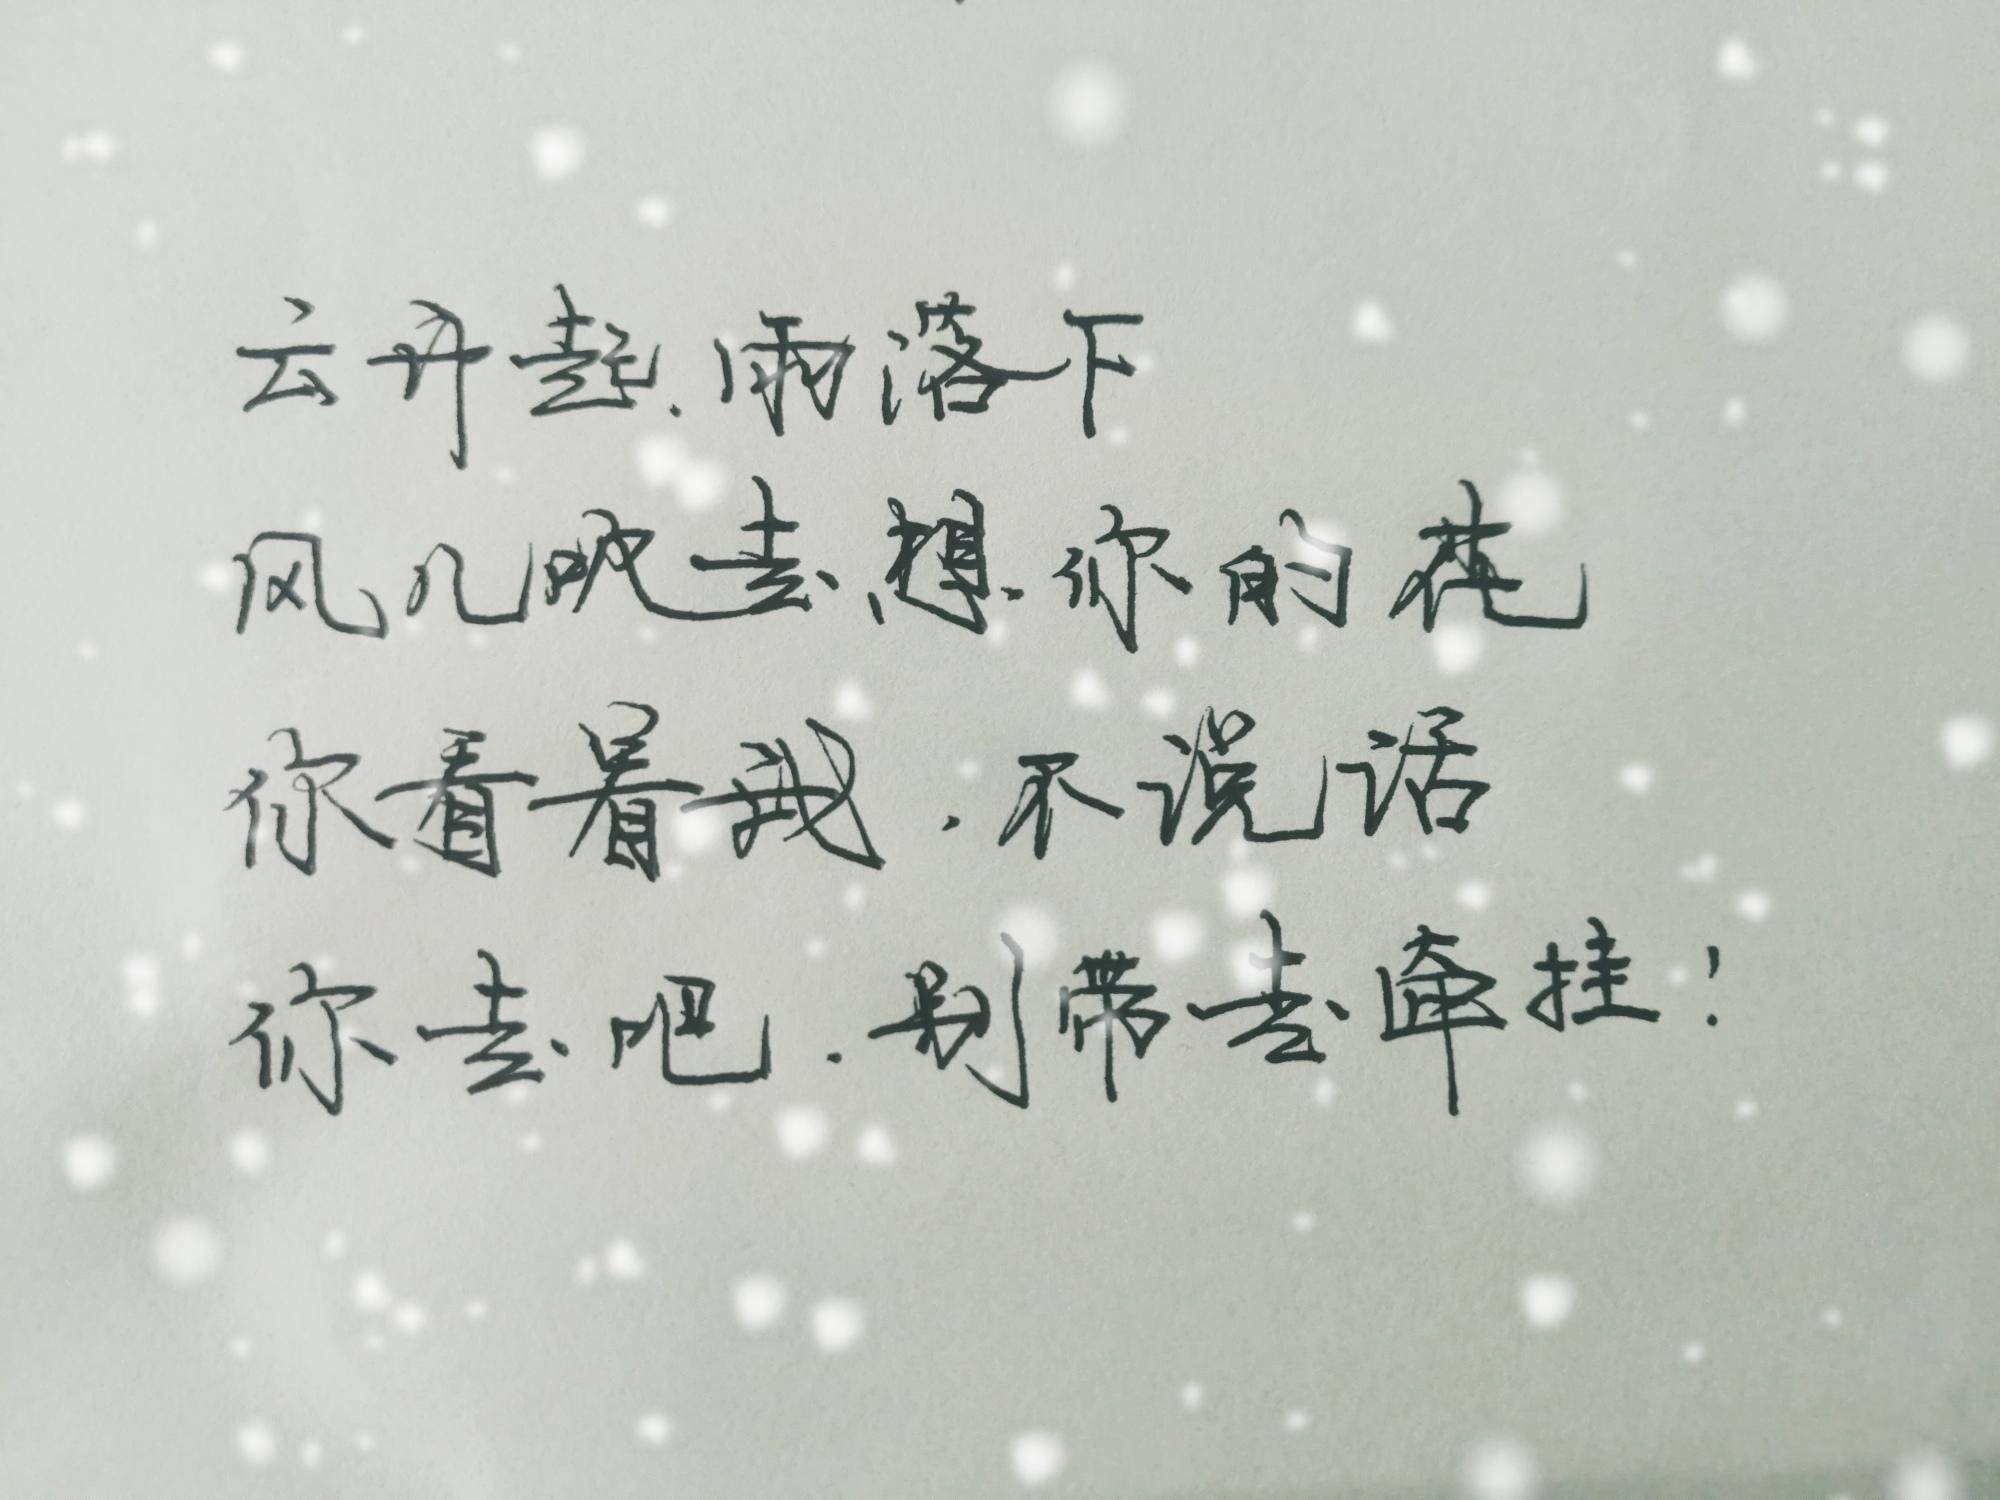 云升起.雨落下
风儿吹去.想.你的花
你看着我.不说话
你去吧.别带去牵挂！